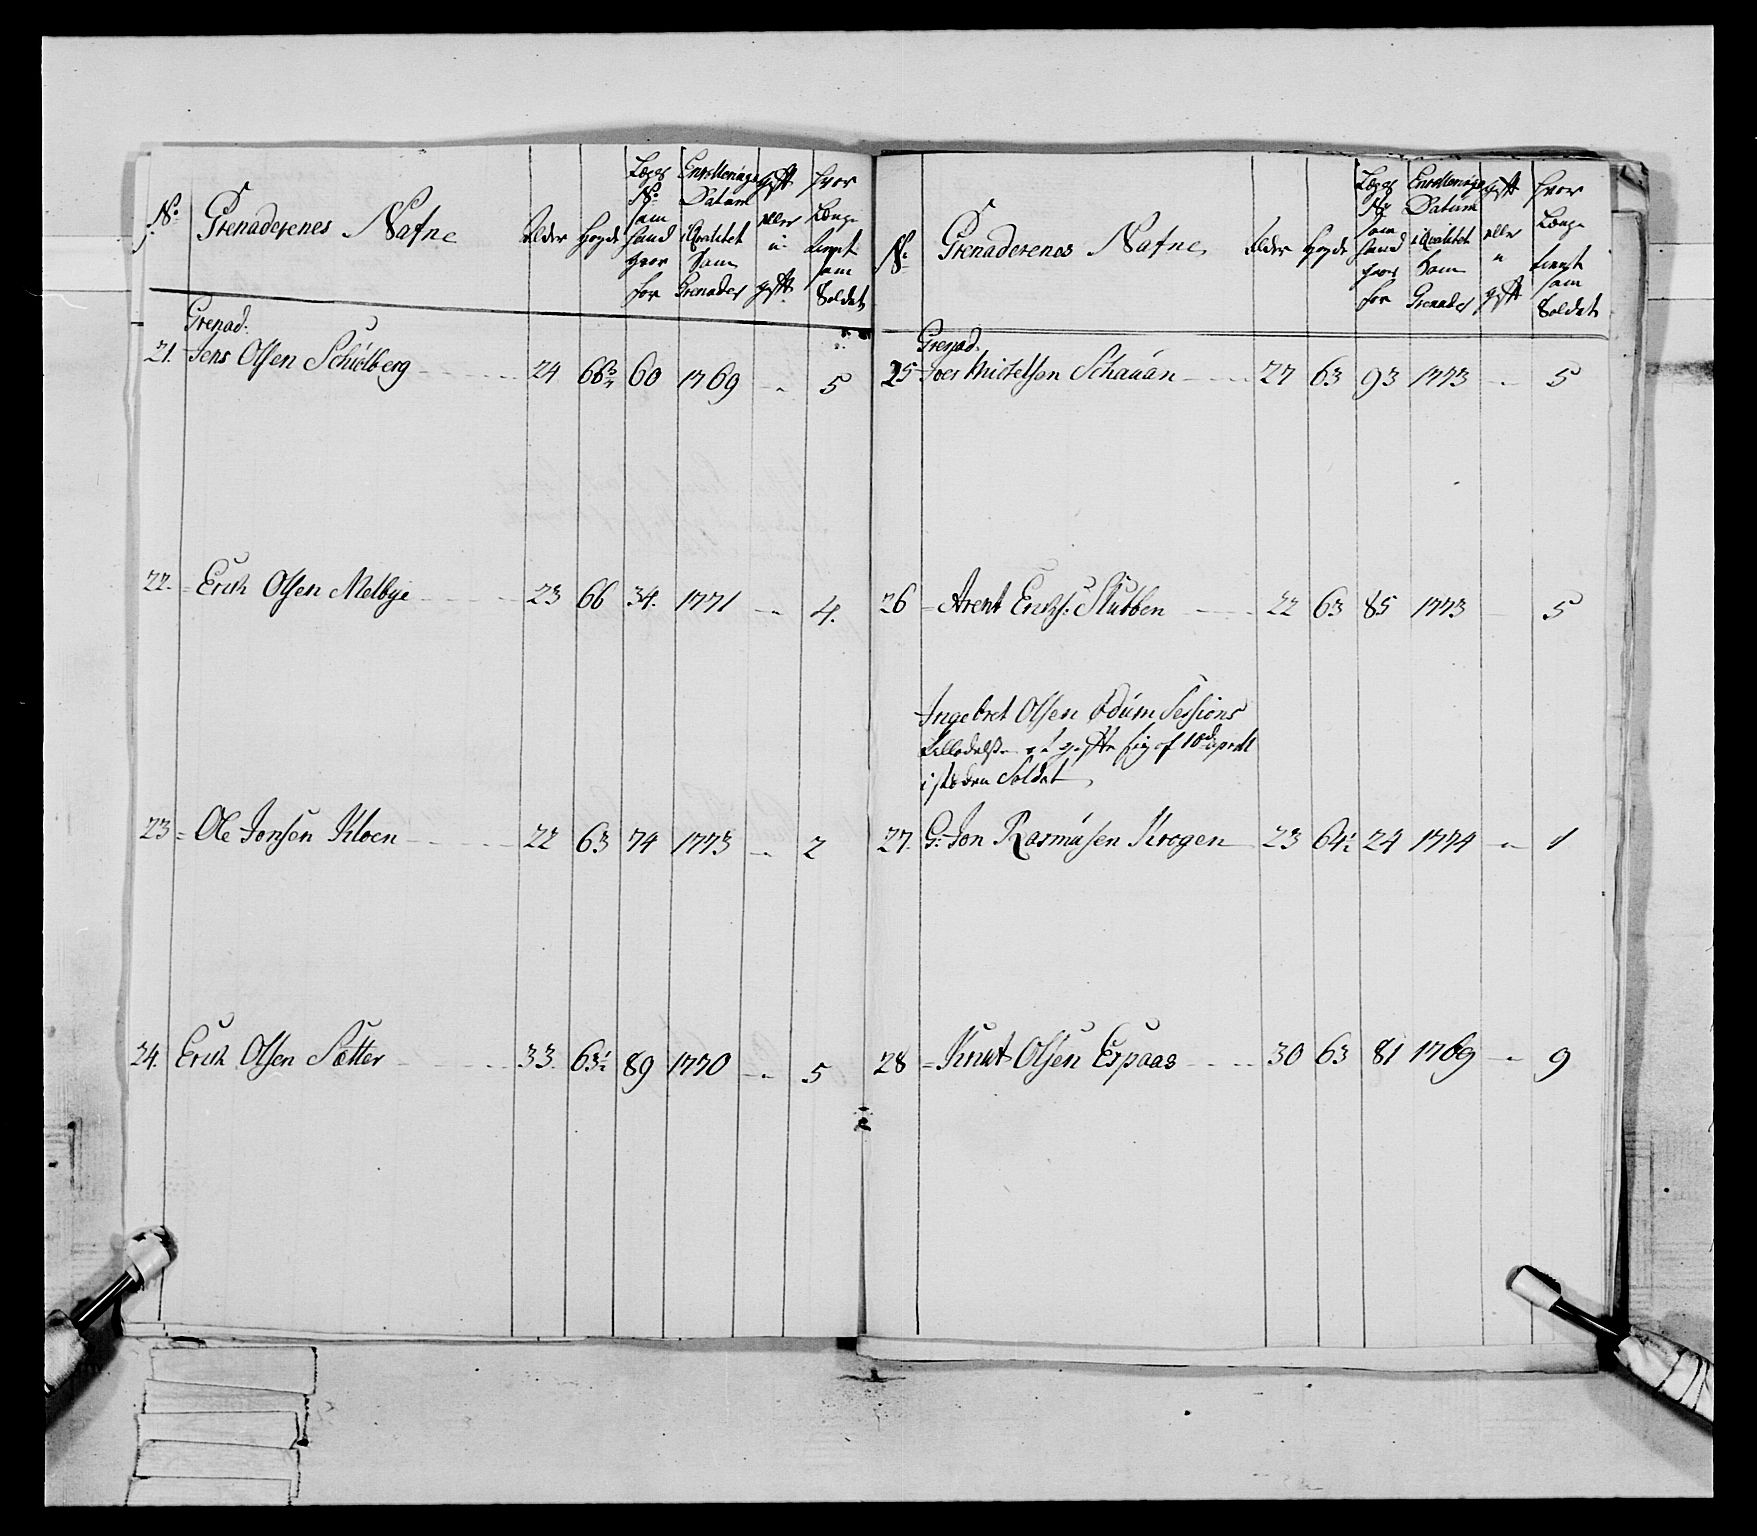 No
Grenaderenes Nafne
Alder
Høyde
Lægs No som hand giør for
Enrollerings Datum i Qvalitet som Grenader
gift eller u gift
hvor Længe tient som Soldat
Grenad:
21. Jens Olsen Schiølberg 24 66¾ 60 1769 5
22. Erich Olsen Melbye 23 66 34. 1771 4.
23 Ole Jonsen Kloen 22 63 74 1773 2
24. Erich Olsen Sætter 33. 63½ 89 1770 5
No
Grenaderenes Nafne
Alder
Høyde
Lægs No som hand giør for
Enrollerings Datum i Qvalitet som Grenader
gift eller u gift
hvor Længe tient som Soldat
Grenad.
25 Michelsen Schauan 27 63 93 1773 5
26 Arent Erichs: Stubben 22 63 85 1773 5
Ingebret Olsen Ødum Sessions
Tilladelse at gifte sig af 10de April
i steden Soldat
27. G: Jon Rasmusen Krogen 23 64½ 24 1774 1
28 Knut Olsen Espaas 30 63 81 1769 9